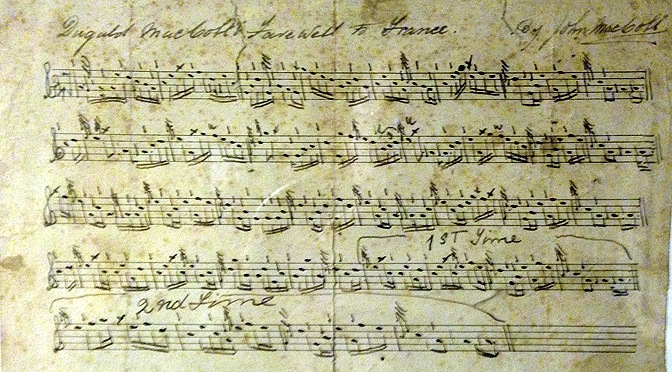 Dugald MacColl's Farewell to France. By John MacColl
1st Time
2nd Time